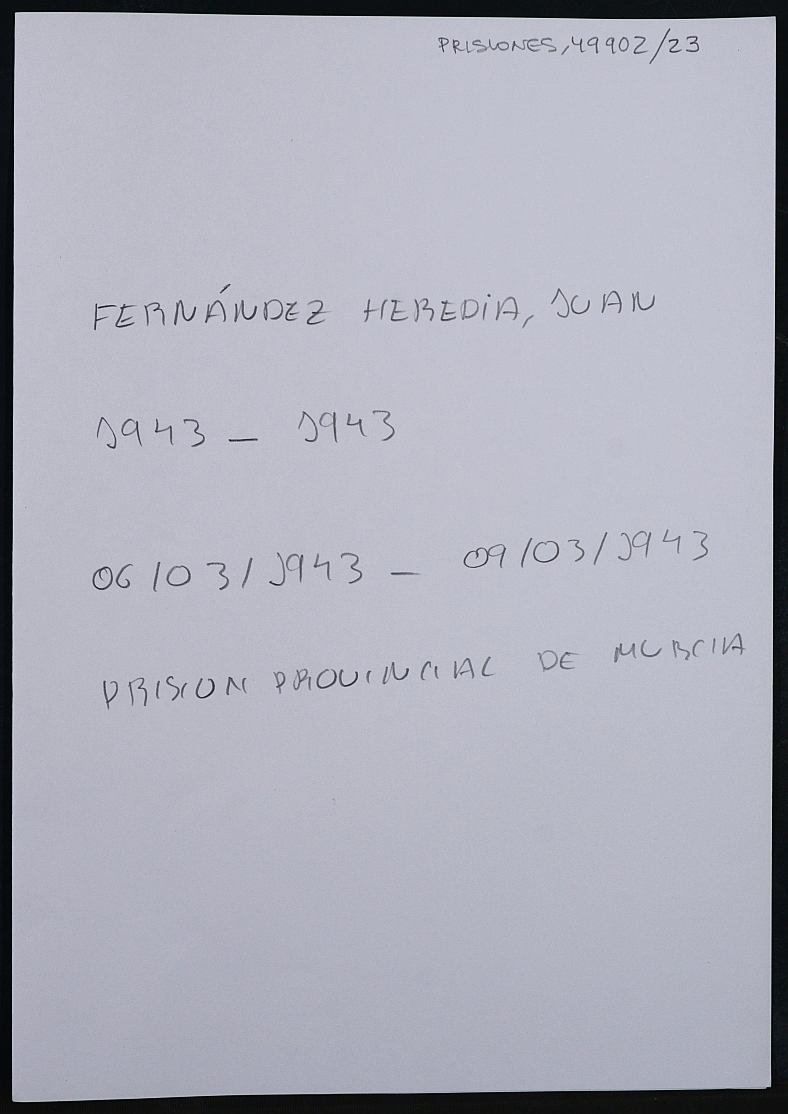 PRISIONES,49902/23
FERNÁNDEZ HEREDIA, JUAN
1943 – 1943
06/03/1943 – 09/03/1943
PRISION PROVINCIAL DE MURCIA